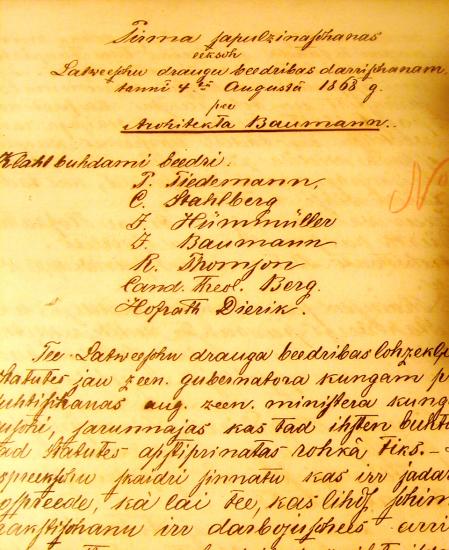 Pirma sapulzinaschanas
eeksch
Latweeschu draugu beedribas darrischanam,
tanni 4tā Augustā 1868 g.
pee
Architekta Baumann.
Klaht buhdami beedri:
P. Tiedemann,
C. Stahlberg
J. Hümmüller
J. Baumann
R. Thomson
Cand. Theol. Berg.
Hofrath Dierik.
No
Tee Latweeschu drauga beedribas lohzekli
Statutes jau zeen. gubernatora kungam p
aug. zeen. ministera kung
jarunnajas kas tad ihsten buht
tad Statutes apstiprinatas rohkâ tiks. –
spreekschu skaidri sinnatu kas irr jadar
kâ lai tee, kas lihds schim
rakstischanu irr darbojuschees